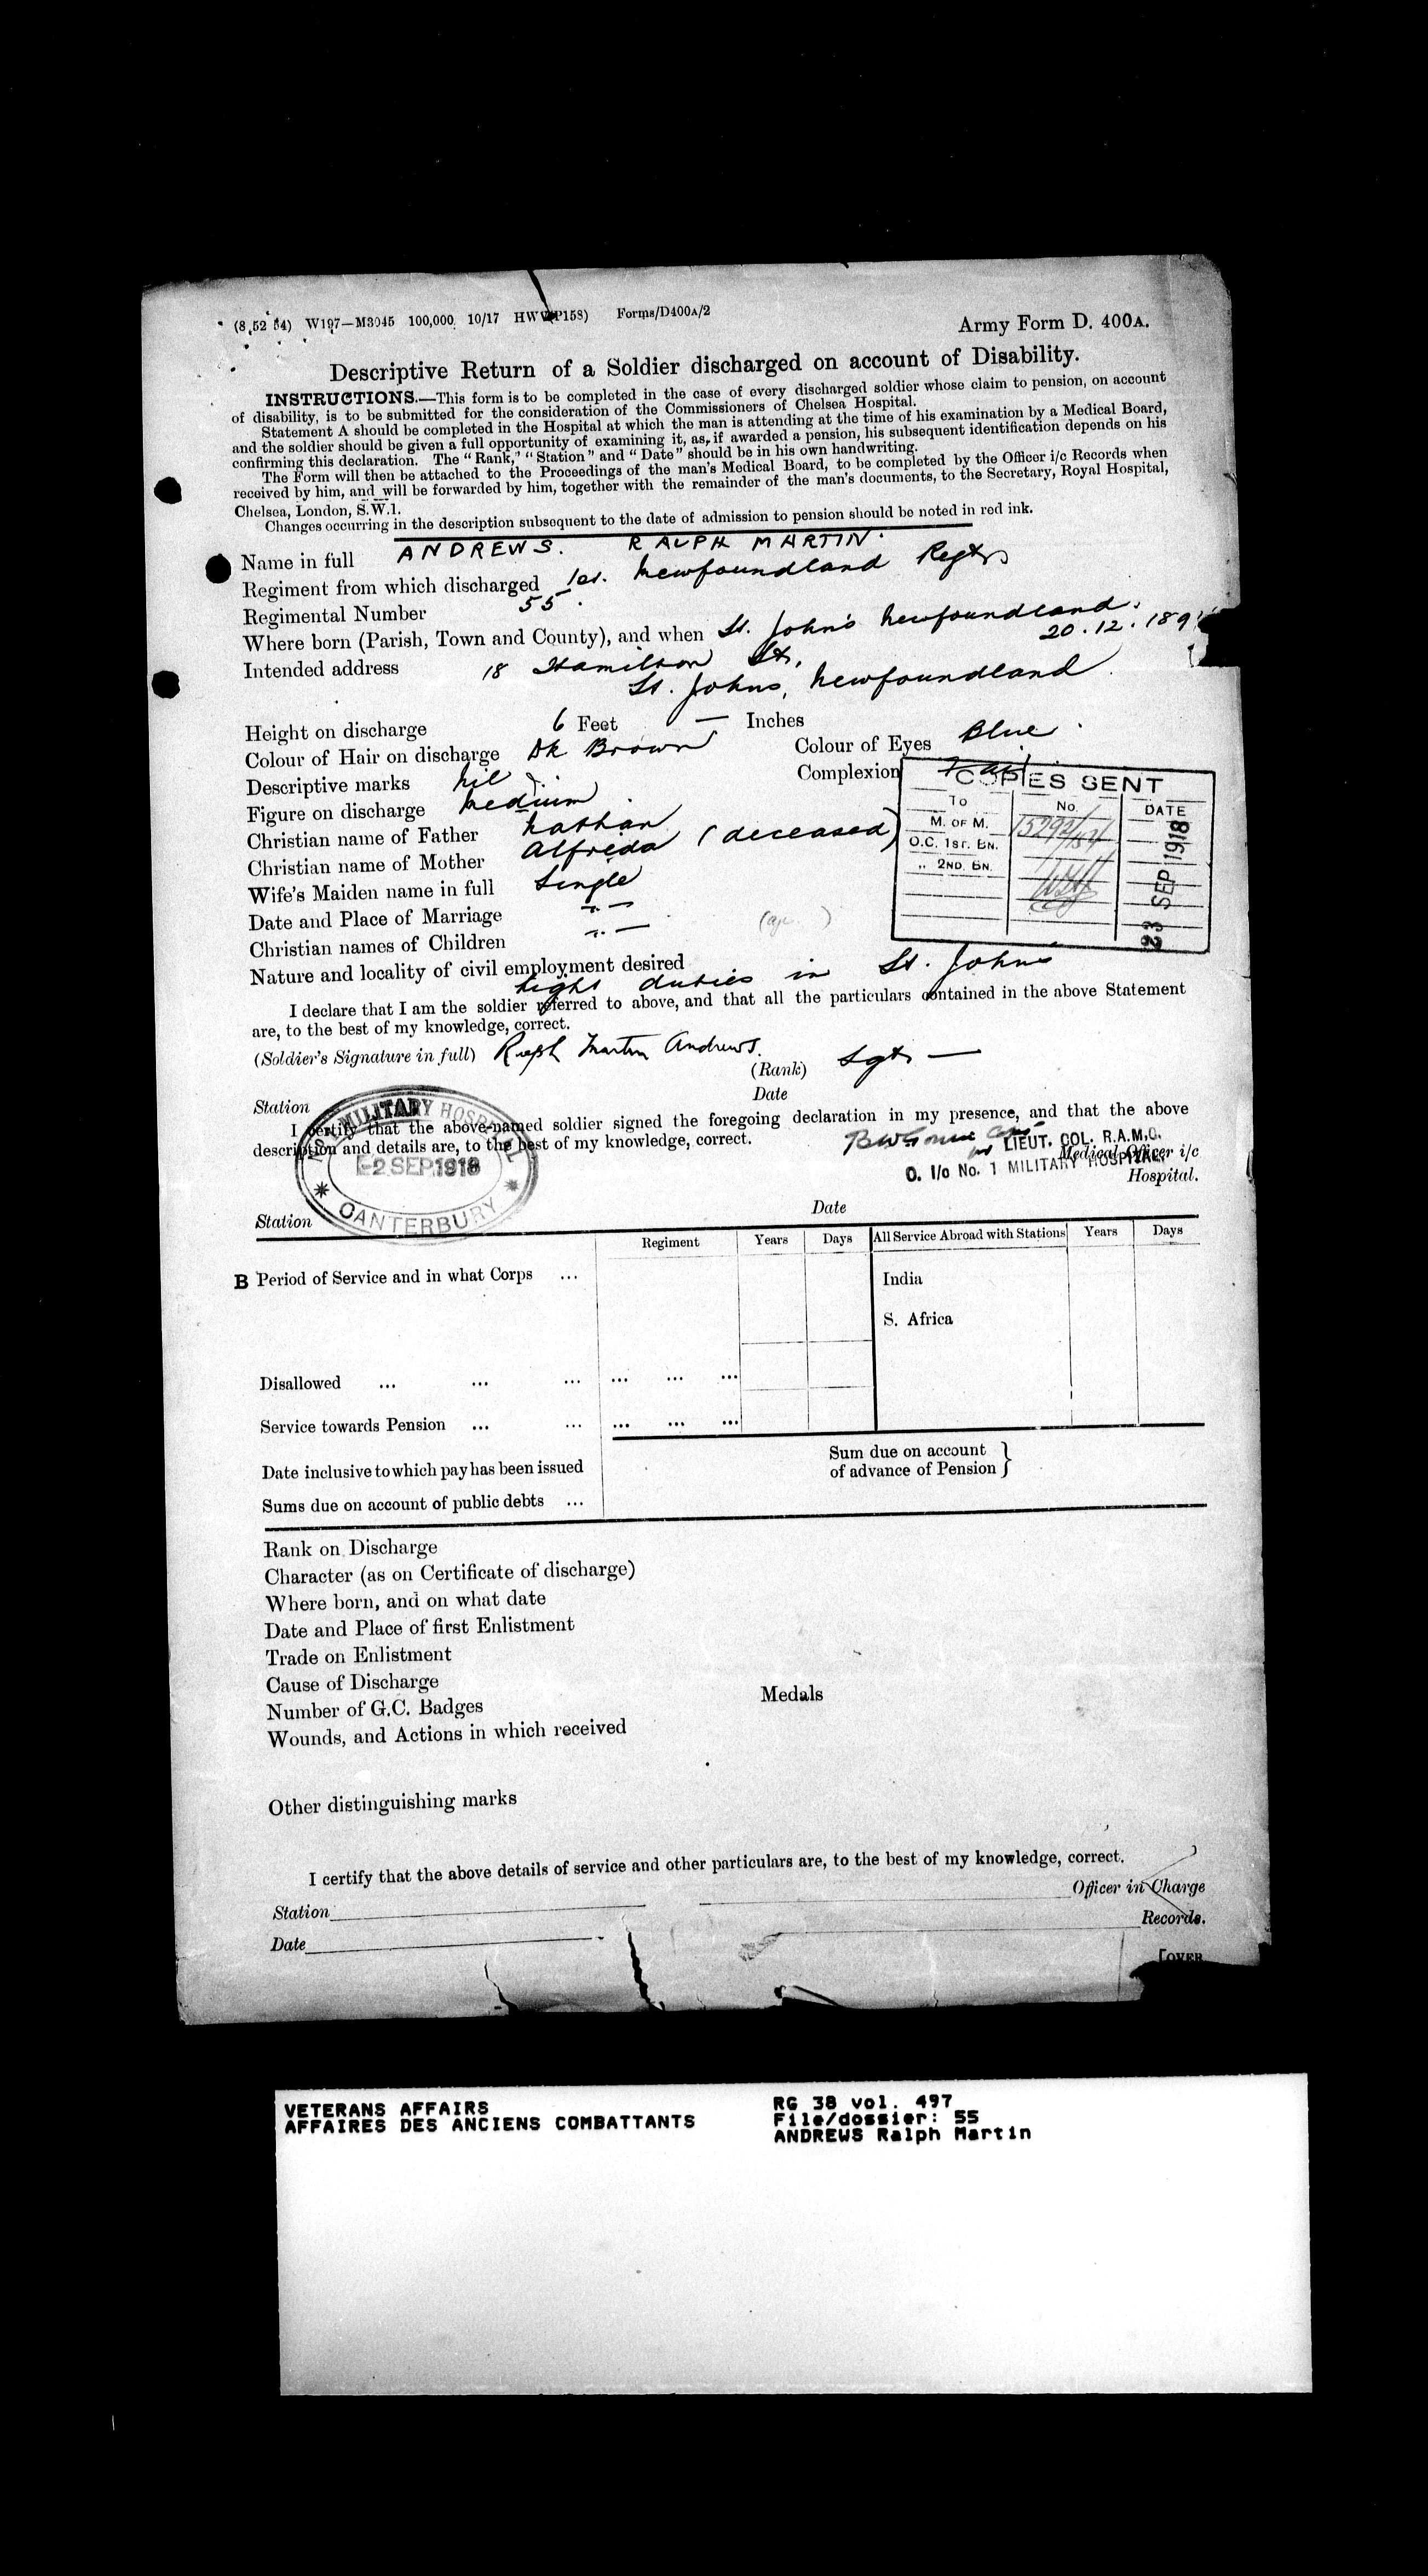 (8 52 54) W197—M3045 100,000 10/17 HWV(P158) Forms/D400A/2
Army Form D. 400A.
Descriptive Return of a Soldier discharged on account of Disability.
INSTRUCTIONS.—This form is to be completed in the case of every discharged soldier whose claim to pension, on account
of disability, is to be submitted for the consideration of the Commissioners of Chelsea Hospital.
Statement A should be completed in the Hospital at which the man is attending at the time of his examination by a Medical Board,
and the soldier should be given a full opportunity of examining it, as, if awarded a pension, his subsequent identification depends on his
confirming this declaration. The "Rank," "Station" and "Date" should be in his own handwriting.
The Form will then be attached to the Proceedings of the man's Medical Board, to be completed by the Officer i/c Records when
received by him, and will be forwarded by him, together with the remainder of the man's documents, to the Secretary, Royal Hospital,
Chelsea, London, S.W.1.
Changes occurring in the description subsequent to the date of admission to pension should be noted in red ink.
Name in full ANDREWS. RALPH MARTIN.
Regiment from which discharged 1st. Newfoundland Regt
Regimental Number 55.
Where born (Parish, Town and County), and when St. John's Newfoundland.
20.12.189
Intended address 18 Hamilton St.
St. Johns, Newfoundland
Height on discharge 6 Feet — Inches
Colour of Hair on discharge Dk Brown Colour of Eyes Blue
Descriptive marks Nil Complexion Fair
Figure on discharge Medium
Christian name of Father Nathan
Christian name of Mother Alfreda (deceased)
Wife's Maiden name in full Single
Date and Place of Marriage -"-
Christian names of Children -"-
COPIES SENT
TO No. DATE
M. OF M.
O.C. 1ST. BN.
" 2ND. BN.
23 SEP 1918
Nature and locality of civil employment desired
light duties in St. Johns
I declare that I am the soldier referred to above, and that all the particulars contained in the above Statement
are, to the best of my knowledge, correct.
(Soldier's Signature in full) Ralph Martin Andrews.
(Rank) Sgt —
Station Date
I certify that the above-named soldier signed the foregoing declaration in my presence, and that the above
description and details are, to the best of my knowledge, correct.
MILITARY HOSPITAL
-2 SEP. 1918
CANTERBURY
LIEUT. COL. R.A.M.C.
Medical Officer i/c
O. I/c No. 1 MILITARY HOSPITAL
Hospital.
Station Date
Regiment Years Days All Service Abroad with Stations Years Days
B Period of Service and in what Corps ... India
S. Africa
Disallowed ... ... ... ... ... ...
Service towards Pension ... ... ... ... ...
Date inclusive to which pay has been issued Sum due on account
of advance of Pension }
Sums due on account of public debts ...
Rank on Discharge
Character (as on Certificate of discharge)
Where born, and on what date
Date and Place of first Enlistment
Trade on Enlistment
Cause of Discharge
Number of G.C. Badges Medals
Wounds, and Actions in which received
Other distinguishing marks
I certify that the above details of service and other particulars are, to the best of my knowledge, correct.
Officer in Charge
Station Records.
Date
[OVER
VETERANS AFFAIRS RG 38 vol. 497
AFFAIRES DES ANCIENS COMBATTANTS File/dossier: 55
ANDREWS Ralph Martin